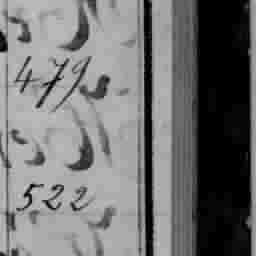 479
522